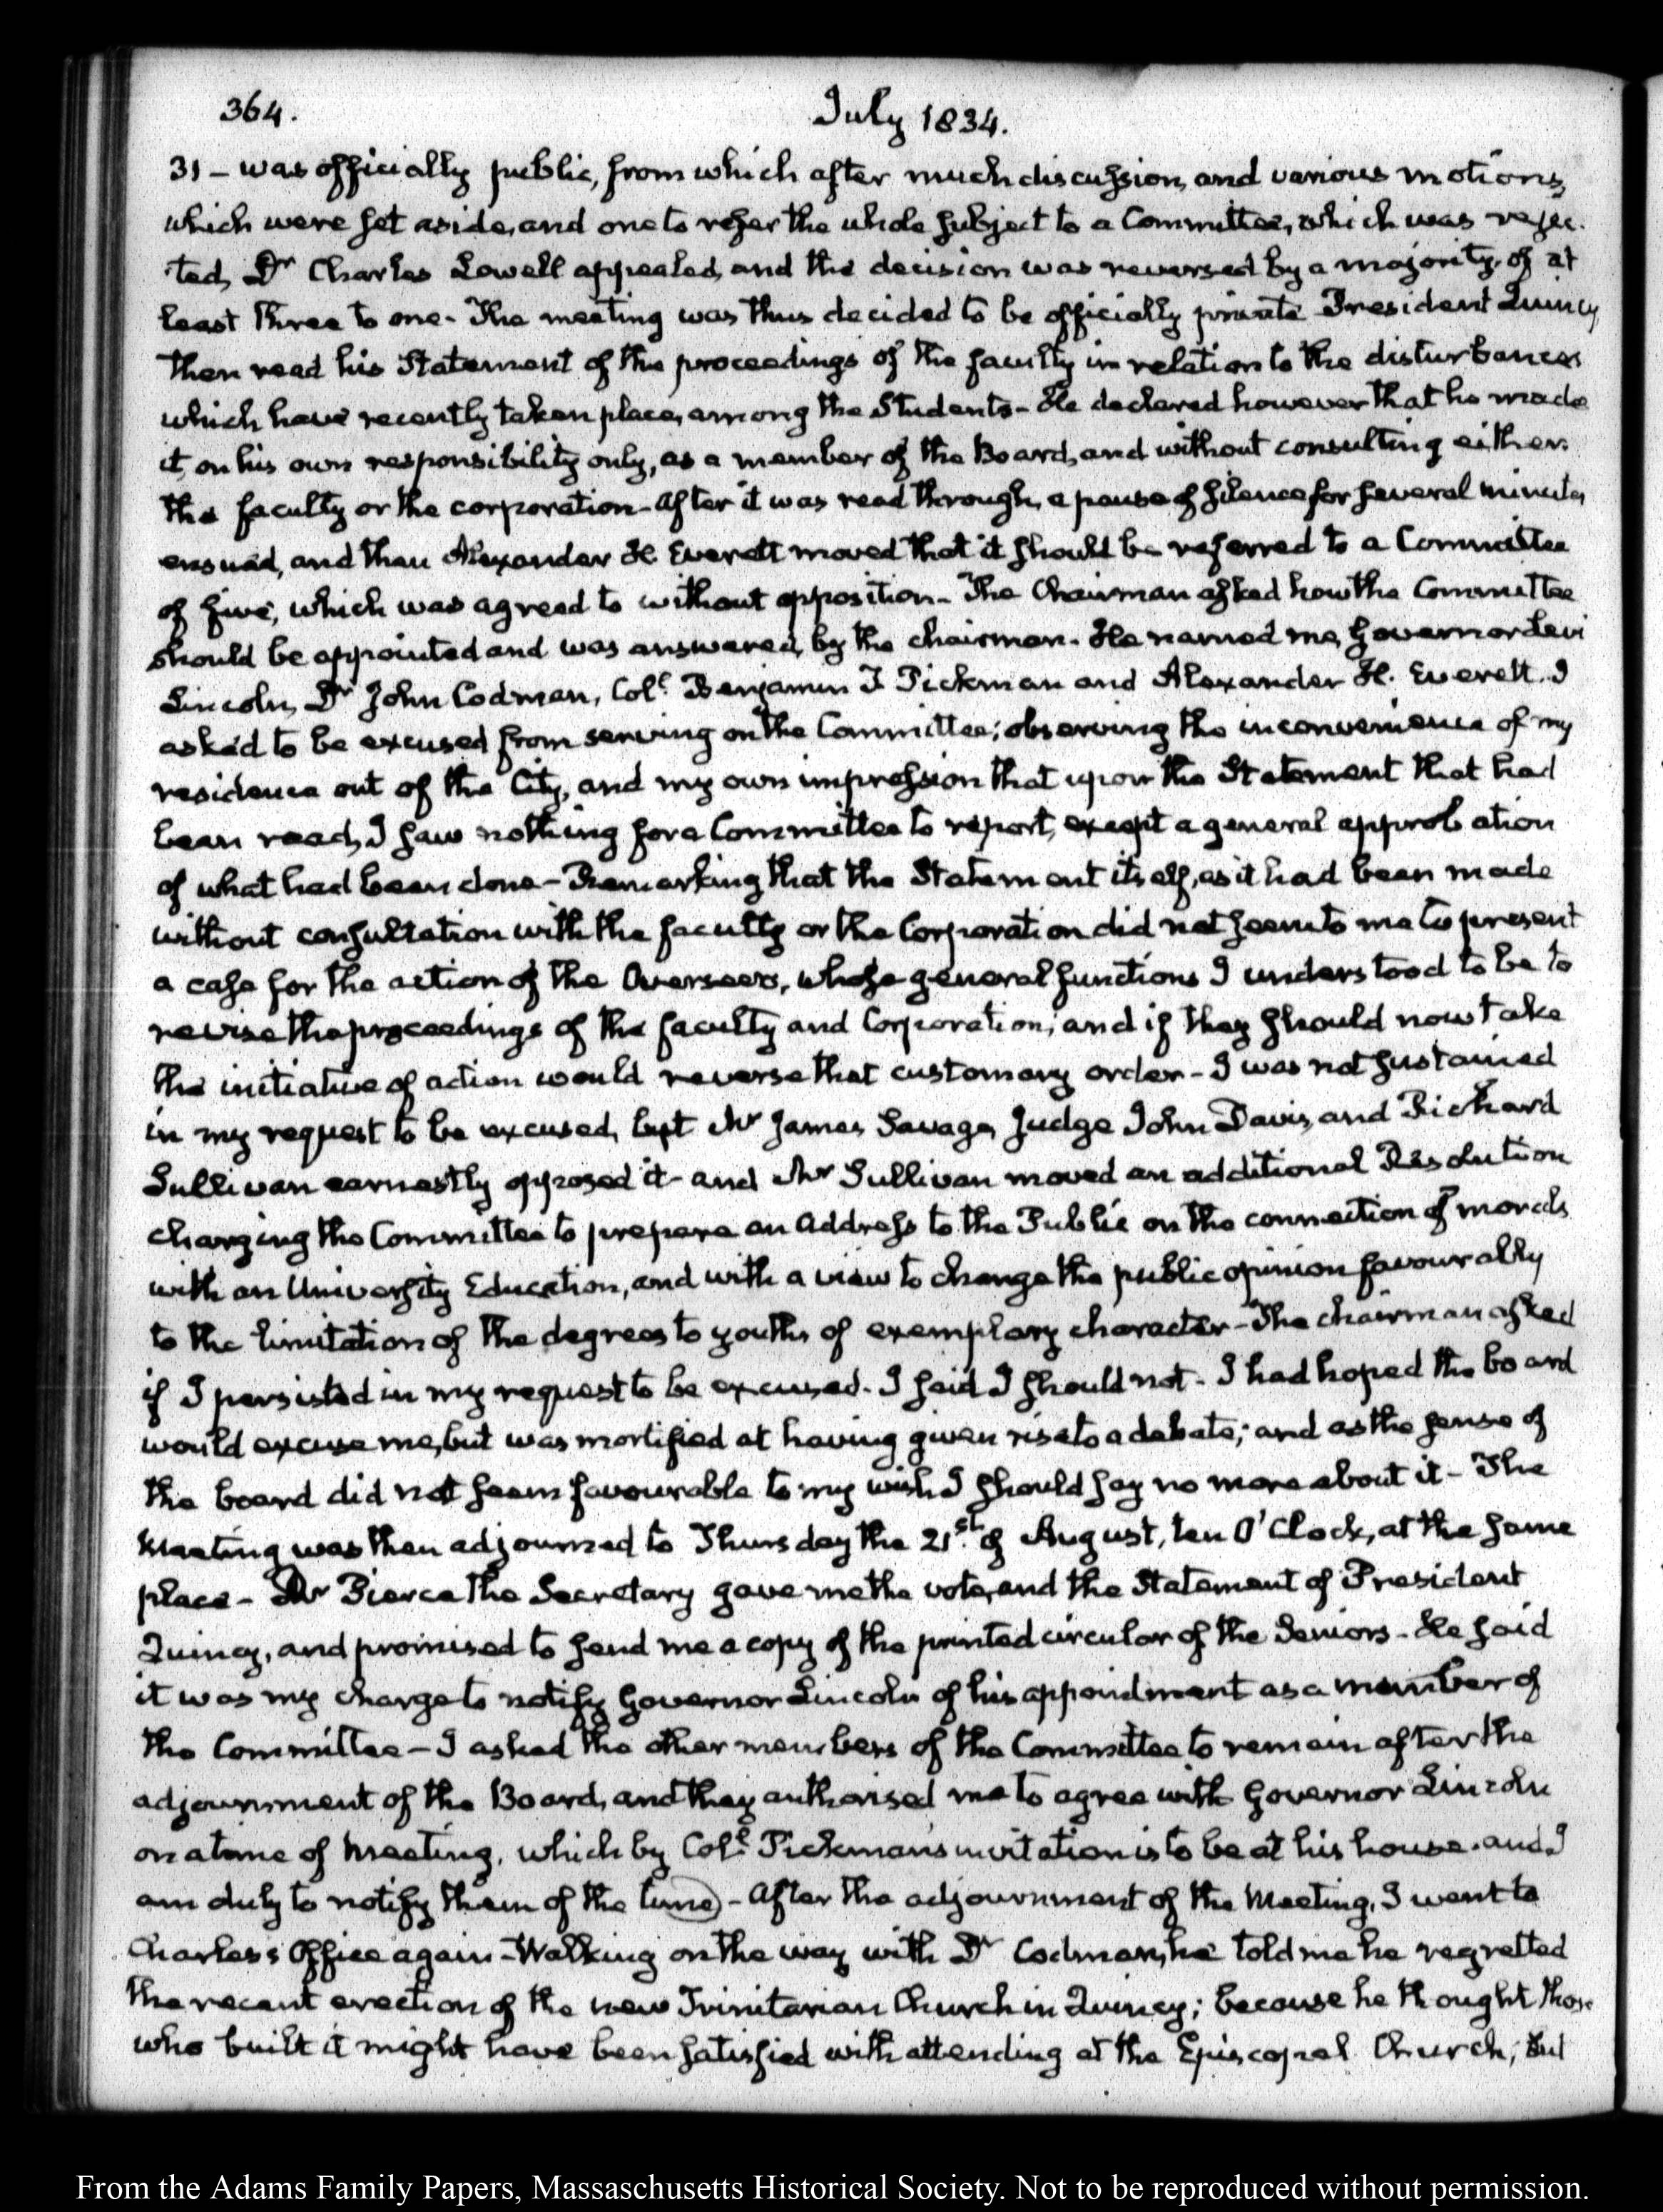 364.
July 1834.
31 – was officially public, from which after much discussion, and various motions,
which were set aside, and one to refer the whole subject to a Committee, which was rejec-
ted, Dr Charles Lowell appealed, and the decision was reversed by a majority, of at
least three to one. The meeting was thus decided to be officially private. President Quincy
then read his Statement of the proceedings of the faculty in relation to the disturbances
which have recently taken place, among the Students – He declared however that he made
it, on his own responsibility only, as a member of the Board, and without consulting either
the faculty or the corporation – after it was read through, a pause of silence for several minutes
ensued, and then Alexander H. Everett moved that it should be referred to a Committee
of five, which was agreed to without opposition – The Chairman asked how the Committee
should be appointed and was answered, by the chairman. He named me, Governor Levi
Lincoln, Dr John Codman, Coll Benjamin T Pickman and Alexander H. Everett. I
asked to be excused from serving on the Committee; observing the inconvenience of my
residence out of the City, and my own impression that upon the Statement that had
been read, I saw nothing for a Committee to report, except a general approbation
of what had been done – Remarking that the Statement itself, as it had been made
without consultation with the faculty or the Corporation did not seem to me to present
a case for the action of the Overseers, whose general functions I understood to be to
revise the proceedings of the faculty and Corporation; and if they should now take
the initiative of action would reverse that customary order – I was not sustained
in my request to be excused, but Mr James Savage, Judge John Davis, and Richard
Sullivan earnestly opposed it – and Mr Sullivan moved an additional Resolution
charging the Committee to prepare an Address to the Public on the connection of morals
with an University Education, and with a view to change the public opinion favourably
to the limitation of the degrees to youths of exemplary character – The chairman asked
if I persisted in my request to be excused. I said I should not – I had hoped the board
would excuse me, but was mortified at having given rise to a debate; and as the sense of
the board did not seem favourable to my wish I should say no more about it – The
Meeting was then adjourned to Thursday the 21st of August, ten O'Clock, at the same
place – Dr Pierce the Secretary gave me the vote, and the Statement of President
Quincy, and promised to send me a copy of the printed circular of the Seniors – He said
it was my charge to notify Governor Lincoln of his appointment as a member of
the Committee – I asked the other members of the Committee to remain after the
adjournment of the Board, and they authorised me to agree with Governor Lincoln
on a time of Meeting, which by Coll Pickman's invitation is to be at his house. and I
am duly to notify them of the time – After the adjournment of the Meeting, I went to
Charles's Office again – Walking on the way with Dr Codman, he told me he regretted
the recent erection of the new Trinitarian Church in Quincy; because he thought those
who built it might have been satisfied with attending at the Episcopal Church; but
From the Adams Family Papers, Massachusetts Historical Society. Not to be reproduced without permission.